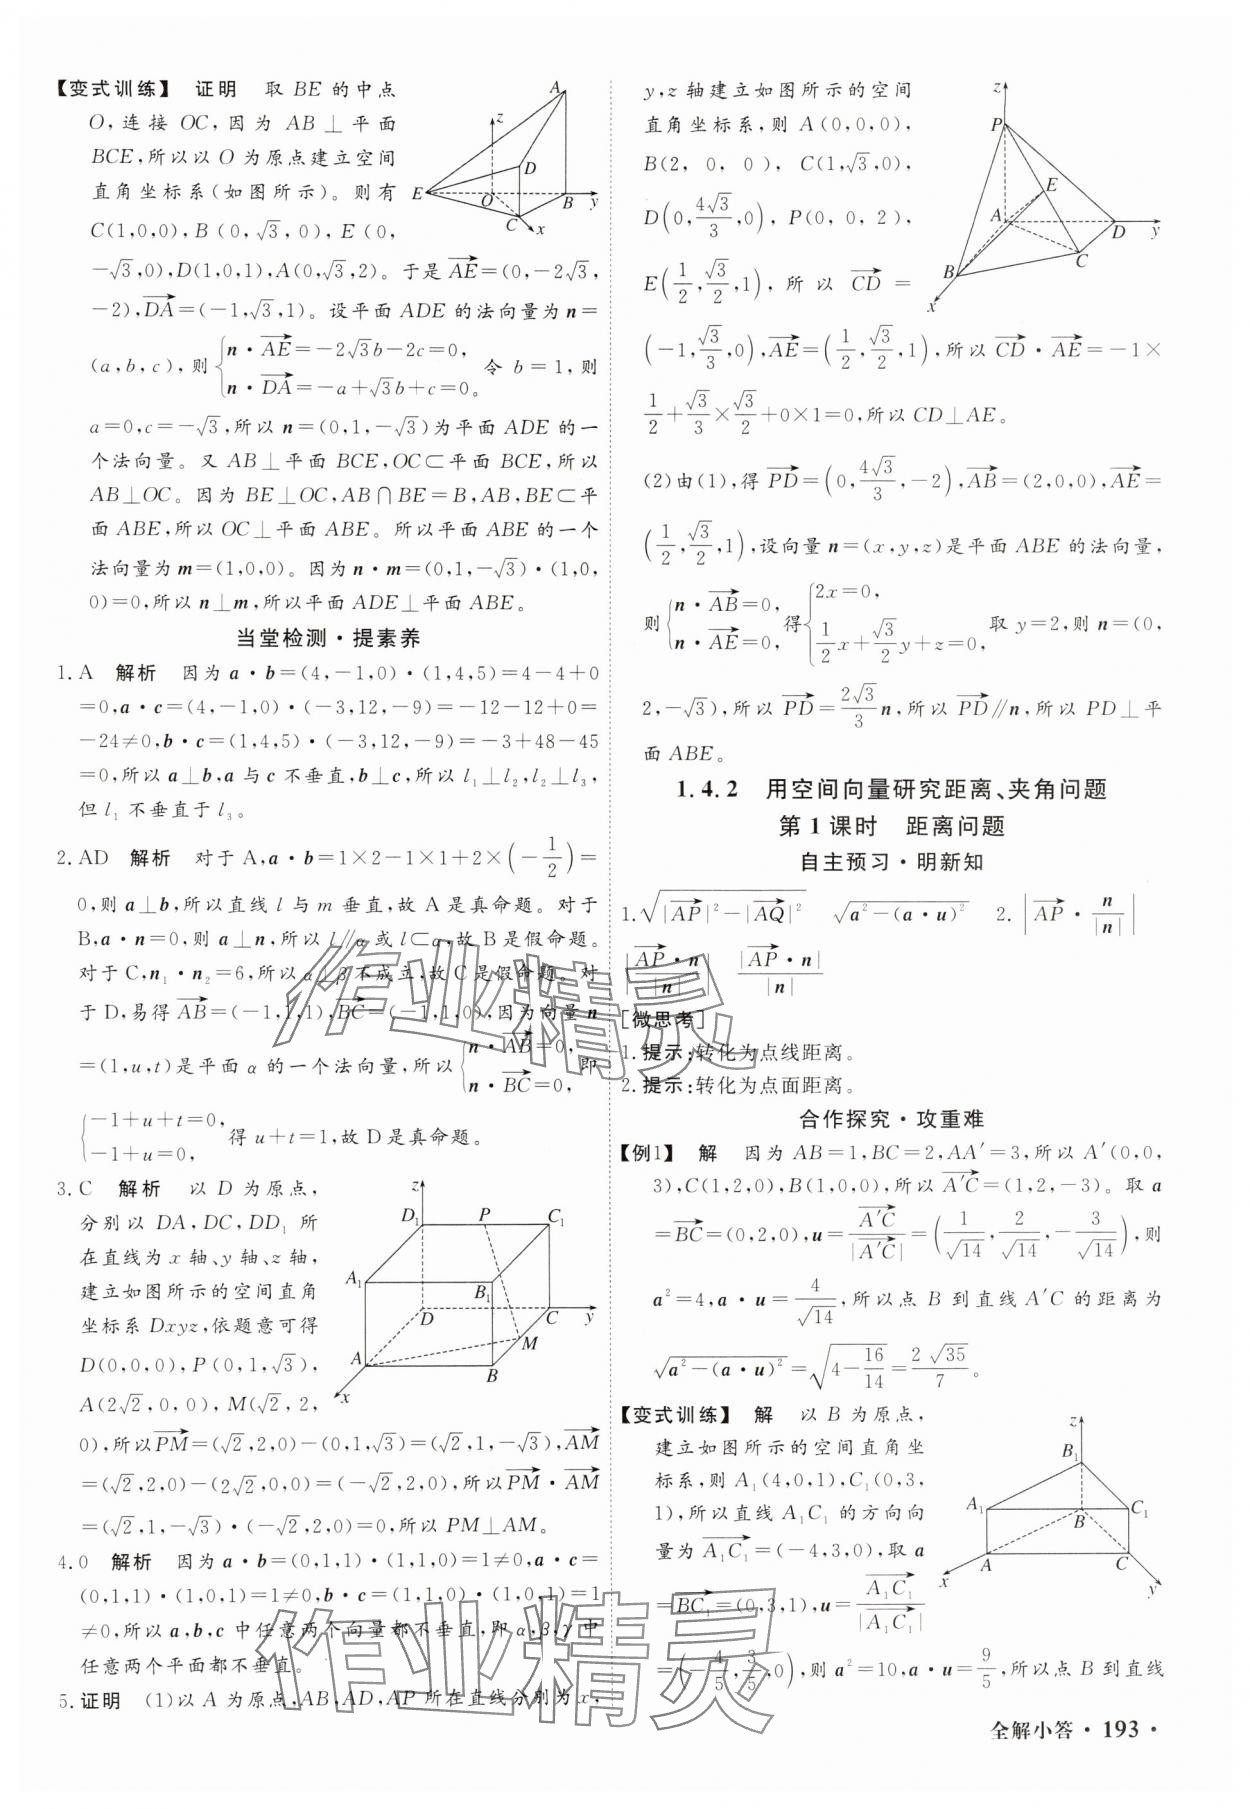 【变式训练】 证明 取 BE 的中点
O,连接 OC,因为 AB⊥平面
BCE,所以以 O 为原点建立空间
直角坐标系(如图所示)。则有
C(1,0,0),B(0,√3,0),E(0,
-√3,0),D(1,0,1),A(0,√3,2)。于是 →AE=(0,-2√3,
-2),→DA=(-1,√3,1)。设平面 ADE 的法向量为 n=
(a,b,c),则{n·→AE=-2√3b-2c=0, n·→DA=-a+√3b+c=0。 令 b=1,则
a=0,c=-√3,所以 n=(0,1,-√3)为平面 ADE 的一
个法向量。又 AB⊥平面 BCE,OC⊂平面 BCE,所以
AB⊥OC。因为 BE⊥OC,AB∩BE=B,AB,BE⊂平
面 ABE,所以 OC⊥平面 ABE。所以平面 ABE 的一个
法向量为 m=(1,0,0)。因为 n·m=(0,1,-√3)·(1,0,
0)=0,所以 n⊥m,所以平面 ADE⊥平面 ABE。
A
z
D
E
O
B
y
C
x
当堂检测·提素养
1. A 解析 因为 a·b=(4,-1,0)·(1,4,5)=4-4+0
=0,a·c=(4,-1,0)·(-3,12,-9)=-12-12+0=
-24≠0,b·c=(1,4,5)·(-3,12,-9)=-3+48-45
=0,所以 a⊥b,a 与 c 不垂直,b⊥c,所以 l₁⊥l₂,l₂⊥l₃,
但 l₁ 不垂直于 l₃。
2. AD 解析 对于 A,a·b=1×2-1×1+2×(-1/2)=
0,则 a⊥b,所以直线 l 与 m 垂直,故 A 是真命题。对于
B,a·n=0,则 a⊥n,所以 l∥α 或 l⊂α,故 B 是假命题。
对于 C,n₁·n₂=6,所以 α⊥β 不成立,故 C 是假命题。对
于 D,易得 →AB=(-1,1,1),→BC=(-1,1,0),因为向量 n
=(1,u,t)是平面 α 的一个法向量,所以{n·→AB=0, n·→BC=0, 即
{-1+u+t=0, -1+u=0, 得 u+t=1,故 D 是真命题。
3. C 解析 以 D 为原点,
分别以 DA,DC,DD₁ 所
在直线为 x 轴、y 轴、z 轴,
建立如图所示的空间直角
坐标系 Dxyz,依题意可得
D(0,0,0),P(0,1,√3),
A(2√2,0,0),M(√2,2,
0),所以→PM=(√2,2,0)-(0,1,√3)=(√2,1,-√3),→AM
=(√2,2,0)-(2√2,0,0)=(-√2,2,0),所以→PM·→AM
=(√2,1,-√3)·(-√2,2,0)=0,所以 PM⊥AM。
z
D₁
P
C₁
A₁
B₁
D
C
y
M
A
B
x
4. 0 解析 因为 a·b=(0,1,1)·(1,1,0)=1≠0,a·c=
(0,1,1)·(1,0,1)=1≠0,b·c=(1,1,0)·(1,0,1)=1
≠0,所以 a,b,c 中任意两个向量都不垂直,即 α,β,γ 中
任意两个平面都不垂直。
5. 证明 (1)以 A 为原点,AB,AD,AP 所在直线分别为 x,
y,z 轴建立如图所示的空间
直角坐标系,则 A(0,0,0),
B(2,0,0),C(1,√3,0),
D(0,4√3/3,0),P(0,0,2),
E(1/2,√3/2,1),所以 →CD=
(-1,√3/3,0),→AE=(1/2,√3/2,1),所以→CD·→AE=-1×
1/2+√3/3×√3/2+0×1=0,所以 CD⊥AE。
z
P
E
A
D
y
B
C
x
(2)由(1),得 →PD=(0,4√3/3,-2),→AB=(2,0,0),→AE=
(1/2,√3/2,1),设向量 n=(x,y,z)是平面 ABE 的法向量,
则{n·→AB=0, n·→AE=0, 得{2x=0, 1/2x+√3/2y+z=0, 取 y=2,则 n=(0,
2,-√3),所以 →PD=2√3/3n,所以→PD∥n,所以 PD⊥平
面 ABE。
1.4.2 用空间向量研究距离、夹角问题
第 1 课时 距离问题
自主预习·明新知
1. √(|→AP|²-|→AQ|²) √(a²-(a·u)²) 2. |→AP·n/|n||
|→AP·n/|n|| |→AP·n|/|n|
[微思考]
1. 提示:转化为点线距离。
2. 提示:转化为点面距离。
合作探究·攻重难
【例1】 解 因为 AB=1,BC=2,AA′=3,所以 A′(0,0,
3),C(1,2,0),B(1,0,0),所以 →A′C=(1,2,-3)。取 a
=→BC=(0,2,0),u=→A′C/|→A′C|=(1/√14,2/√14,-3/√14),则
a²=4,a·u=4/√14,所以点 B 到直线 A′C 的距离为
√(a²-(a·u)²)=√(4-16/14)=2√35/7。
【变式训练】 解 以 B 为原点,
建立如图所示的空间直角坐
标系,则 A₁(4,0,1),C₁(0,3,
1),所以直线 A₁C₁ 的方向向
量为 →A₁C₁=(-4,3,0),取 a
=→BC₁=(0,3,1),u=→A₁C₁/|→A₁C₁|
=(-4/5,3/5,0),则 a²=10,a·u=9/5,所以点 B 到直线
z
B₁
A₁
C₁
B
A
C
x
y
作业精灵
作业精灵
全解小答·193·